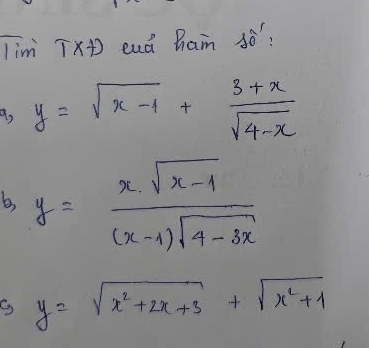 Tìm TXĐ cuả hàm số:
a, y = √(x - 1) + (3 + x)/√(4 - x)
b, y = (x. √(x - 1))/((x - 1)√(4 - 3x))
c, y = √(x² + 2x + 3) + √(x² + 1)